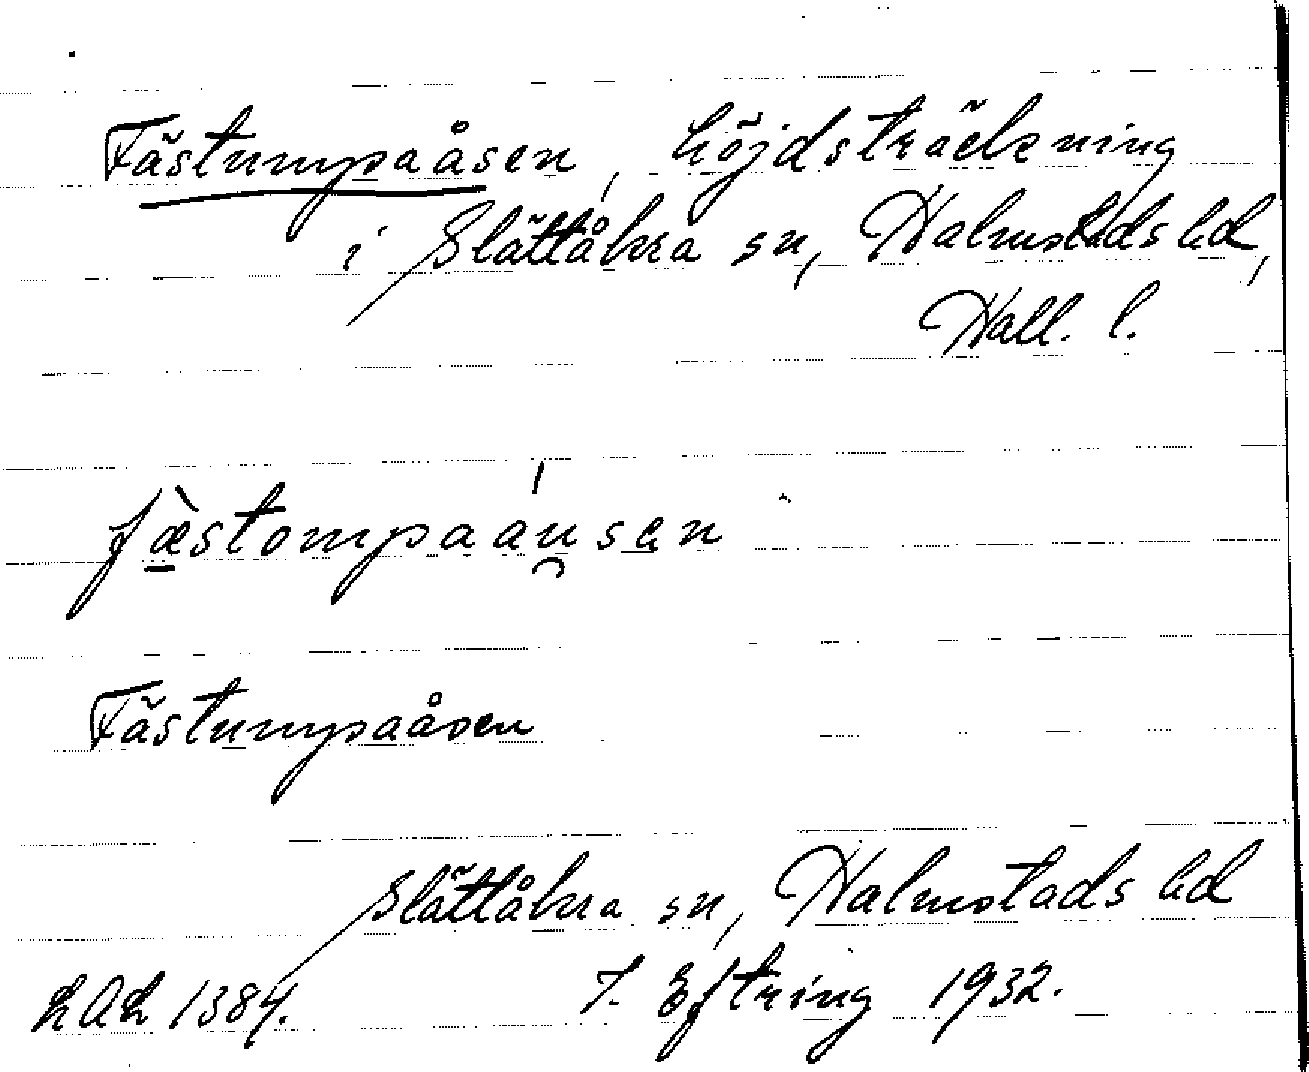 Fästumpaåsen, höjdsträckning
i Slättåkra sn, Halmstads hd,
Hall. l.
fæ̀stompaáu̯sen
Fästumpaåsen
Slättåkra sn, Halmstads hd
LAL 1384. J. Eftring 1932.